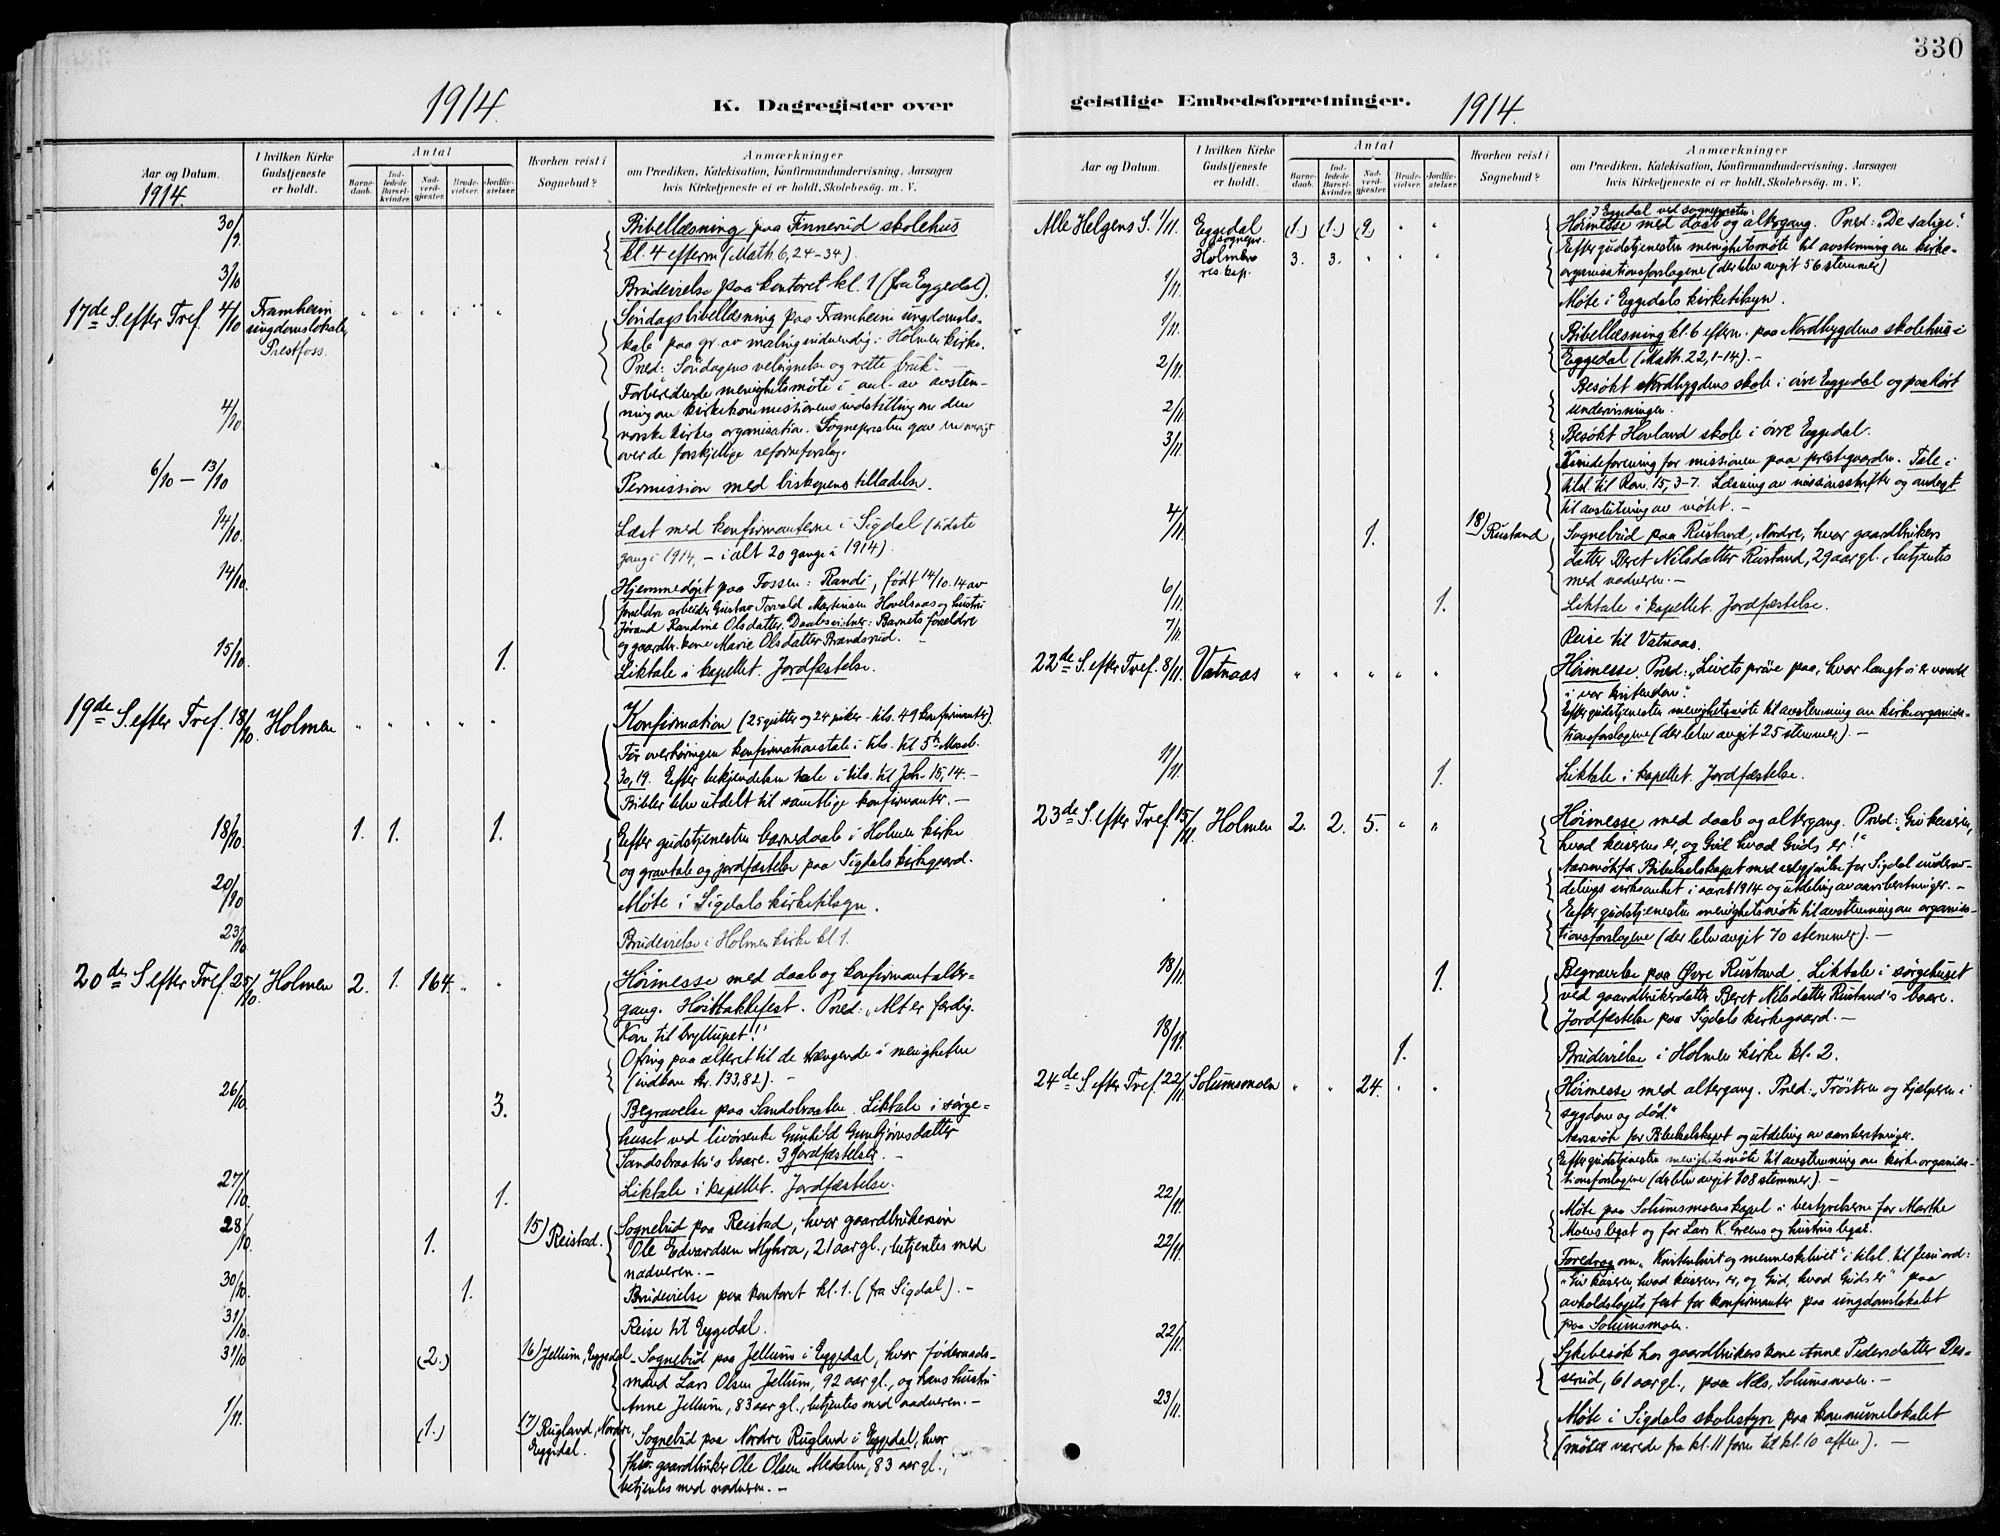 330
1914.
K. Dagregister over
geistlige Embedsforretninger.
1914.
Aar og Datum.
1914.
I hvilken Kirke
Gudstjeneste
er holdt.
Antal
Barne-
daab.
Ind-
ledede
Barsel-
kvinder.
Nad-
verd-
gjæster.
Brude-
vielser.
Jordfæ-
stelser.
Hvorhen reist i
Sognebud?
Anmærkninger
om Prædiken, Katekisation, Konfirmandundervisning, Aarsagen
hvis Kirketjeneste ei er holdt, Skolebesøg, m. V.
30/9. Bibellæsning paa Finnerud skolehus
kl. 4 efterm (Math 6, 24-34).
3/10 Brudevielse paa kontoret kl. 1 (fra Eggedal).
17de S. efter Tref. 4/10 Framheim
ungdomslokale,
Prestfoss. " " " " "
Søndagsbibellæsning paa Framheim ungdomslo-
kale paa gr. av maling indvendig i Holmen kirke.
Pred: Søndagens velsignelse og rette bruk." -
4/10 Forberedende menighetsmøte i anl. av avstem-
ning om kirkekommissionens indstilling om den
norske kirkes organisation. Sognepresten gav en oversigt
over de forskjellige reformforslag.
6/10 - 13/10 Permission med biskopens tilladelse.
14/10. Læst med konfirmanterne i Sigdal (sidste
gang i 1914, - i alt 20 gange i 1914).
14/10. Hjemmedøpt paa Fossen: Randi, født 14/10.14 av
forældre arbeider Gustav Torvald Martinsen Hovelsaas og hustru
Jørand Randine Olsdatter. Daabsvidner: Barnets forældre
og gaardbr. kone Marie Olsdatter Brændsrud. -
15/10. 1. Liktale i kapellet. Jordfæstelse.
19de S. efter Tref. 18/10. Holmen " " " " "
Konfirmation (25 gutter og 24 piker - tils. 49 konfirmanter).
Før overhøringen konfirmationstale i tils. til 5te Moseb.
30, 19. Efter bekjendelsen tale i tils. til Joh. 15, 14. -
Bibler blev utdelt til samtlige konfirmanter. -
18/10. 1. 1. 1. Efter gudstjenesten barnedaab i Holmen kirke
og gravtale og jordfæstelse paa Sigdals kirkegaard.
20/10 Møte i Sigdals kirketilsyn.
23/10 Brudevielse i Holmen kirke kl. 1.
20de S. efter Tref. 25/10. Holmen 2. 1. 164. " "
Høimesse med daab og konfirmantalter-
gang. Høsttakkefest. Pred: "Alt er færdig.
Kom til bryllupet!"
Ofring paa alteret til de trængende i menigheten
(indkom kr. 133,82). -
26/10. 3. Begravelse paa Sandsbraaten. Liktale i sørge-
huset ved livørsenke Gunhild Gunbjørnsdatter
Sandsbraaten's baare. 3 Jordfæstelser. -
27/10. 1. Liktale i kapellet. Jordfæstelse.
28/10. 1. 15) Reistad. Sognebud paa Reistad, hvor gaardbrukersøn
Ole Edvardsen Myhra, 21 aar gl., betjentes med
nadveren. -
30/10. 1. Brudevielse paa kontoret kl. 1. (fra Sigdal). -
31/10. Reise til Eggedal.
31/10 (2.) 16) Jellum, Eggedal - Sognebud paa Jellum i Eggedal, hvor føderaads-
mand Lars Olsen Jellum, 92 aar gl., og hans hustru
Anne Jellum, 83 aar gl., betjentes med nadveren. -
1/11. (1.) 17) Rugland, Nordre,
Eggedal. Sognebud paa Nordre Rugland i Eggedal, hvor
gaardbruker Ole Olsen Medalen, 83 aar gl.,
betjentes med nadveren. -
Aar og Datum.
I hvilken Kirke
Gudstjeneste
er holdt.
Antal
Barne-
daab.
Ind-
ledede
Barsel-
kvinder.
Nad-
verd-
gjæster.
Brude-
vielser.
Jordfæ-
stelser.
Hvorhen reist i
Sognebud?
Anmærkninger
om Prædiken, Katekisation, Konfirmandundervisning, Aarsagen
hvis Kirketjeneste ei er holdt, Skolebesøg, m. V.
Alle Helgens S. 1/11. Eggedal
sognepr.
Holmen
res. kap. (1.) (1.) (2. " "
3. 3. " " "
I Eggedal ved sognepresten:
Høimesse med daab og altergang. Pred: "De salige".
Efter gudstjenesten menighetsmøte til avstemning om kirke-
organisationsforslagene (der blev avgit 56 stemmer)
1/11. Møte i Eggedals kirketilsyn.
1/11. Bibellæsning kl. 6 efterm. paa Nordbygdens skolehus i
Eggedal (Math. 22, 1-14). -
2/11. Besøkt Nordbygdens skole i øvre Eggedal og paahørt
undervisningen.
2/11. Besøkt Hovland skole i øvre Eggedal.
3/11. Kvindeforening for missionen paa prestegaarden. Tale i
tilsl. til Rom. 15, 3-7. Læsning av missionsskrifter og andagt
til avslutning av møtet. -
4/11. 1. 18) Rustand Sognebud paa Rustand, Nordre, hvor gaardbrukers
datter Beret Nilsdatter Rustand, 29 aar gl., betjentes
med nadveren. -
6/11. 1. Liktale i kapellet. Jordfæstelse.
7/11. Reise til Vatnaas.
22de S. efter Tref. 8/11. Vatnaas " " " " "
Høimesse. Pred: "Livets prøve paa, hvor langt vi er vundt
i vor kristendom".
Efter gudstjenesten menighetsmøte til avstemning om kirkeorganisa-
tionsforslagene (der blev avgit 25 stemmer). -
11/11. 1. Liktale i kapellet. Jordfæstelse.
23de S. efter Tref. 15/11. Holmen 2. 2. 5. " "
Høimesse med daab og altergang. Pred: "Giv keiseren,
hvad keiserens er, og Gud hvad Guds er!"
Aarsmøte for Bibelselskapet med redegjørelse for Sigdal underav-
delings virksomhet i aaret 1914 og utdeling av aarsberetninger. -
Efter gudstjenesten menighetsmøte til avstemning om organisa-
tionsforslagene (der blev avgit 70 stemmer). -
18/11. 1. Begravelse paa Øvre Rustand. Liktale i sørgehuset
ved gaardbrukerdatter Beret Nilsdatter Rustand's baare.
Jordfæstelse paa Sigdals kirkegaard. -
18/11. 1. Brudevielse i Holmen kirke kl. 2.
24de S. efter Tref. 22/11. Solumsmoen " " 24. " "
Høimesse med altergang. Pred: "Trøsten og hjælperen i
sygdom og død."
Aarsmøte for Bibelselskapet og utdeling av aarsberetninger.
Efter gudstjenesten menighetsmøte til avstemning om kirkeorganisa-
tionsforslagene (der blev avgit 108 stemmer). -
22/11. Møte paa Solumsmoens kapel i bestyrelserne for Marthe
Moens legat og for Lars K. Greens og hustrus legat.
22/11. Foredrag om "Kristenlivet og menneskelivet" i tilsl. til Jesu ord:
"Giv keiseren, hvad keiserens er, og Gud, hvad Guds er" paa
avholdslagets fest for konfirmanter paa ungdomslokalet
paa Solumsmoen.
22/11. Sykebesøk hos gaardbrukers kone Anne Pedersdatter Des-
serud, 61 aar gl., paa Næs, Solumsmoen. -
23/11. Møte i Sigdals skolestyre paa kommunelokalet
(møtet varede fra kl. 11 form til kl. 10 aften). -